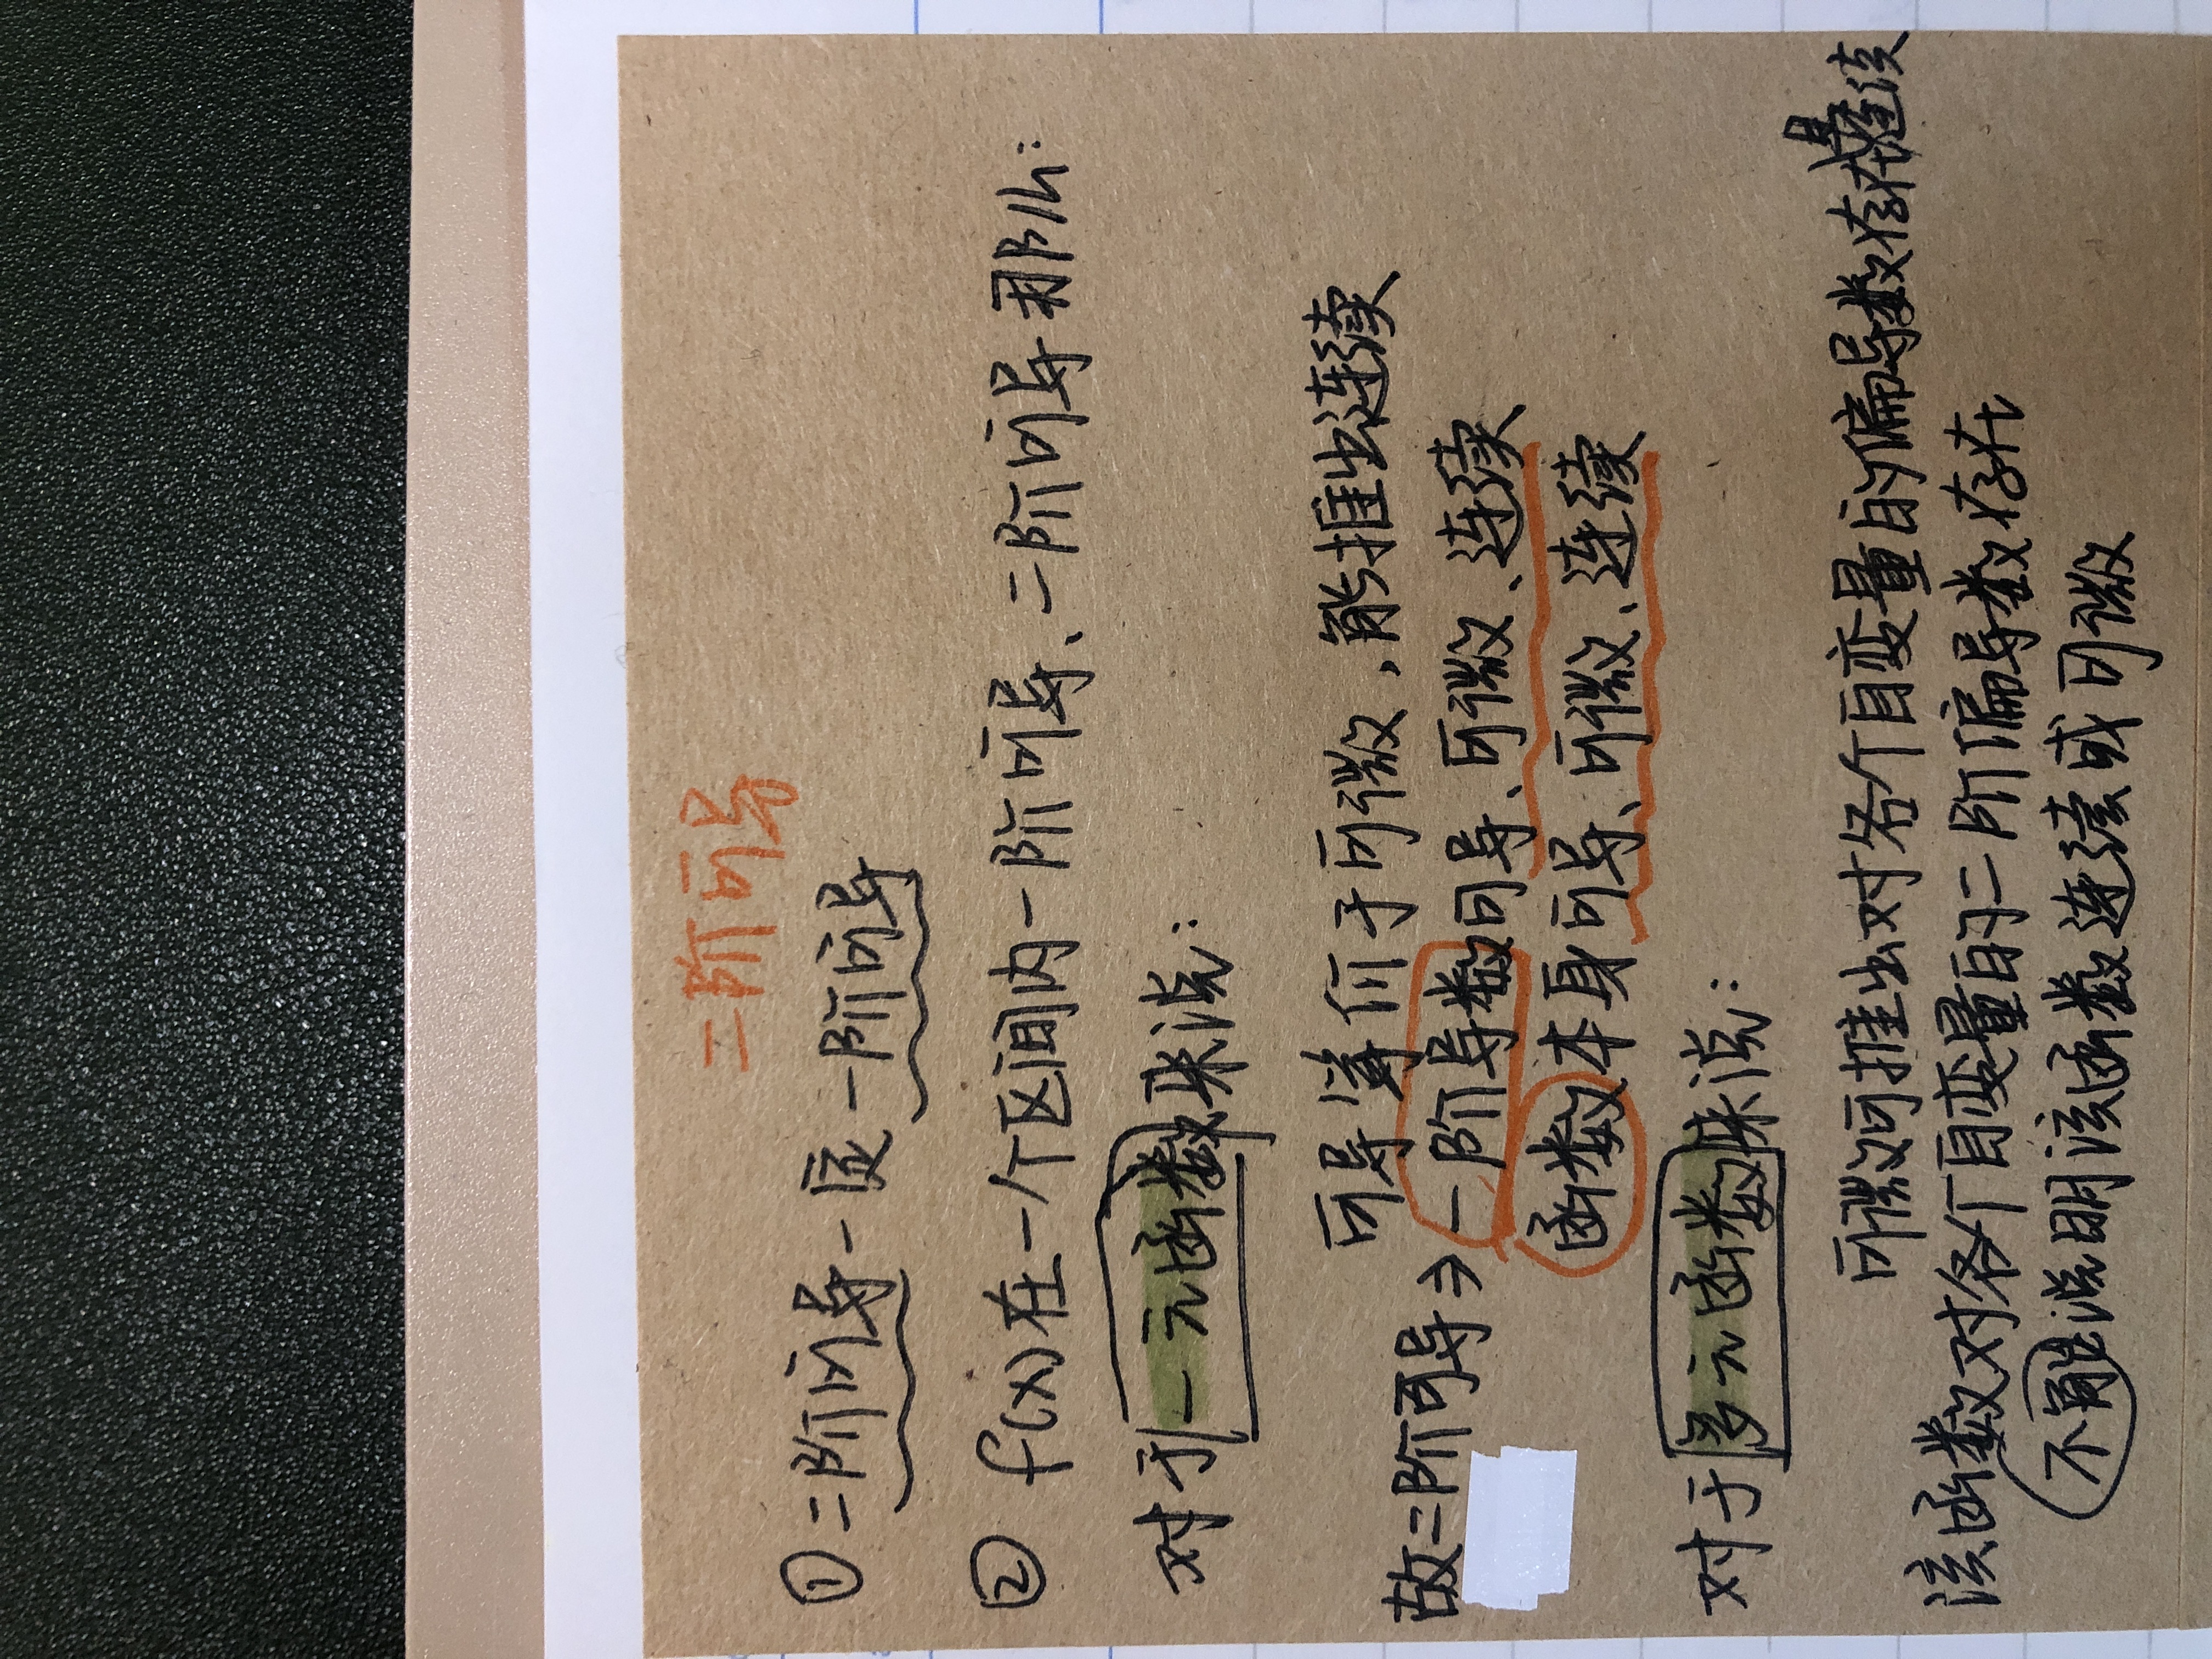 二阶可导
①二阶可导一定一阶可导
② f(x)在一个区间内一阶可导、二阶可导那么:
对于一元函数来说:
可导等价于可微,能推出连续
故二阶可导⇒一阶导数可导、可微、连续
函数本身可导、可微、连续
对于多元函数来说:
可微可推出对各个自变量的偏导数存在且连续
该函数对各个自变量的二阶偏导数存在
不能说明该函数连续或可微